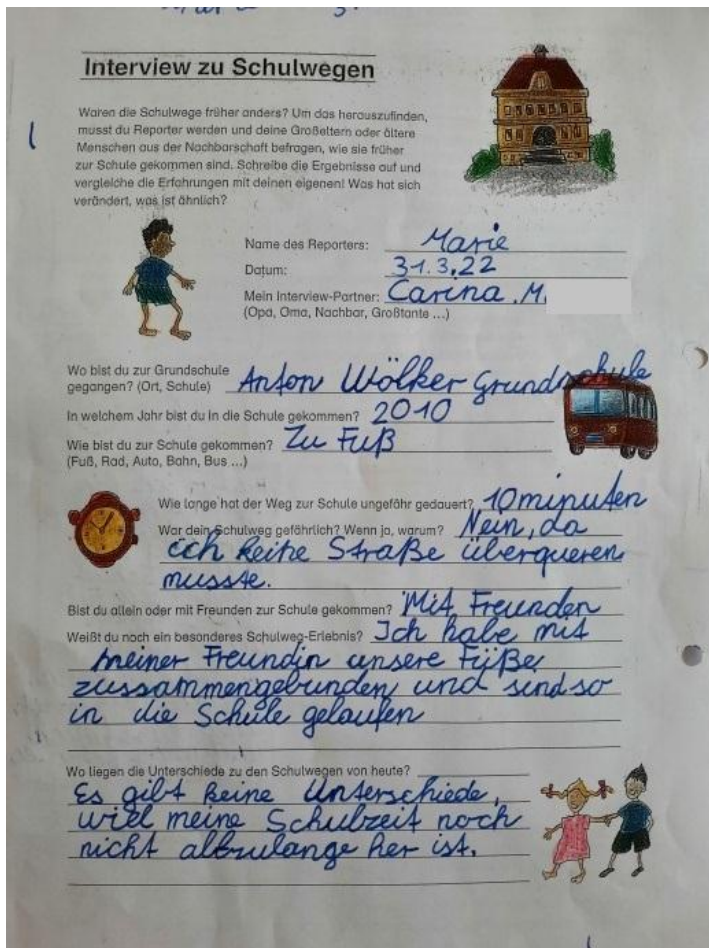 Interview zu Schulwegen
Waren die Schulwege früher anders? Um das herauszufinden,
musst du Reporter werden und deine Großeltern oder ältere
Menschen aus der Nachbarschaft befragen, wie sie früher
zur Schule gekommen sind. Schreibe die Ergebnisse auf und
vergleiche die Erfahrungen mit deinen eigenen! Was hat sich
verändert, was ist ähnlich?
Name des Reporters: Marie
Datum: 31.3.22
Mein Interview-Partner: Carina M.
(Opa, Oma, Nachbar, Großtante ...)
Wo bist du zur Grundschule
gegangen? (Ort, Schule) Anton Wölker Grundschule
In welchem Jahr bist du in die Schule gekommen? 2010
Wie bist du zur Schule gekommen? Zu Fuß
(Fuß, Rad, Auto, Bahn, Bus ...)
Wie lange hat der Weg zur Schule ungefähr gedauert? 10 minuten
War dein Schulweg gefährlich? Wenn ja, warum? Nein, da
ich keine Straße überqueren
musste.
Bist du allein oder mit Freunden zur Schule gekommen? Mit Freunden
Weißt du noch ein besonderes Schulweg-Erlebnis? Ich habe mit
meiner Freundin unsere Füße
zussammengebunden und sind so
in die Schule gelaufen
Wo liegen die Unterschiede zu den Schulwegen von heute?
Es gibt keine Unterschiede,
wiel meine Schulzeit noch
nicht allzulange her ist.